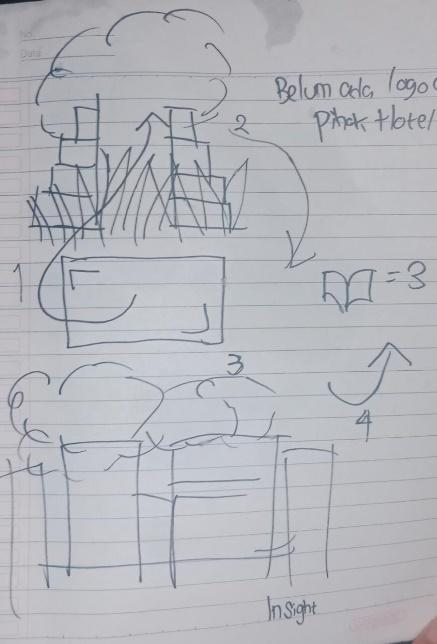 No.
Date
Belum ada logo
Pihak Hotel
2
1
= 3
3
4
InSight